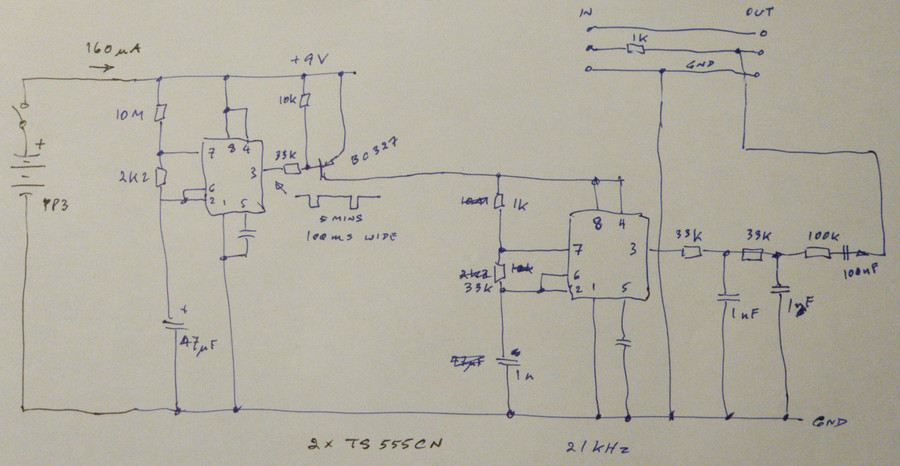 IN
OUT
1K
160µA
+9V
GND
10M
10K
BC327
7
8
4
33K
3
2K2
6
2
1
5
5 MINS
100MS WIDE
PP3
+
1K
8
4
7
3
33K
33K
100K
100nF
2K2
10K
33K
6
2
1
5
1nF
1nF
+
47µF
47µF
1n
GND
2x TS555CN
21KHz